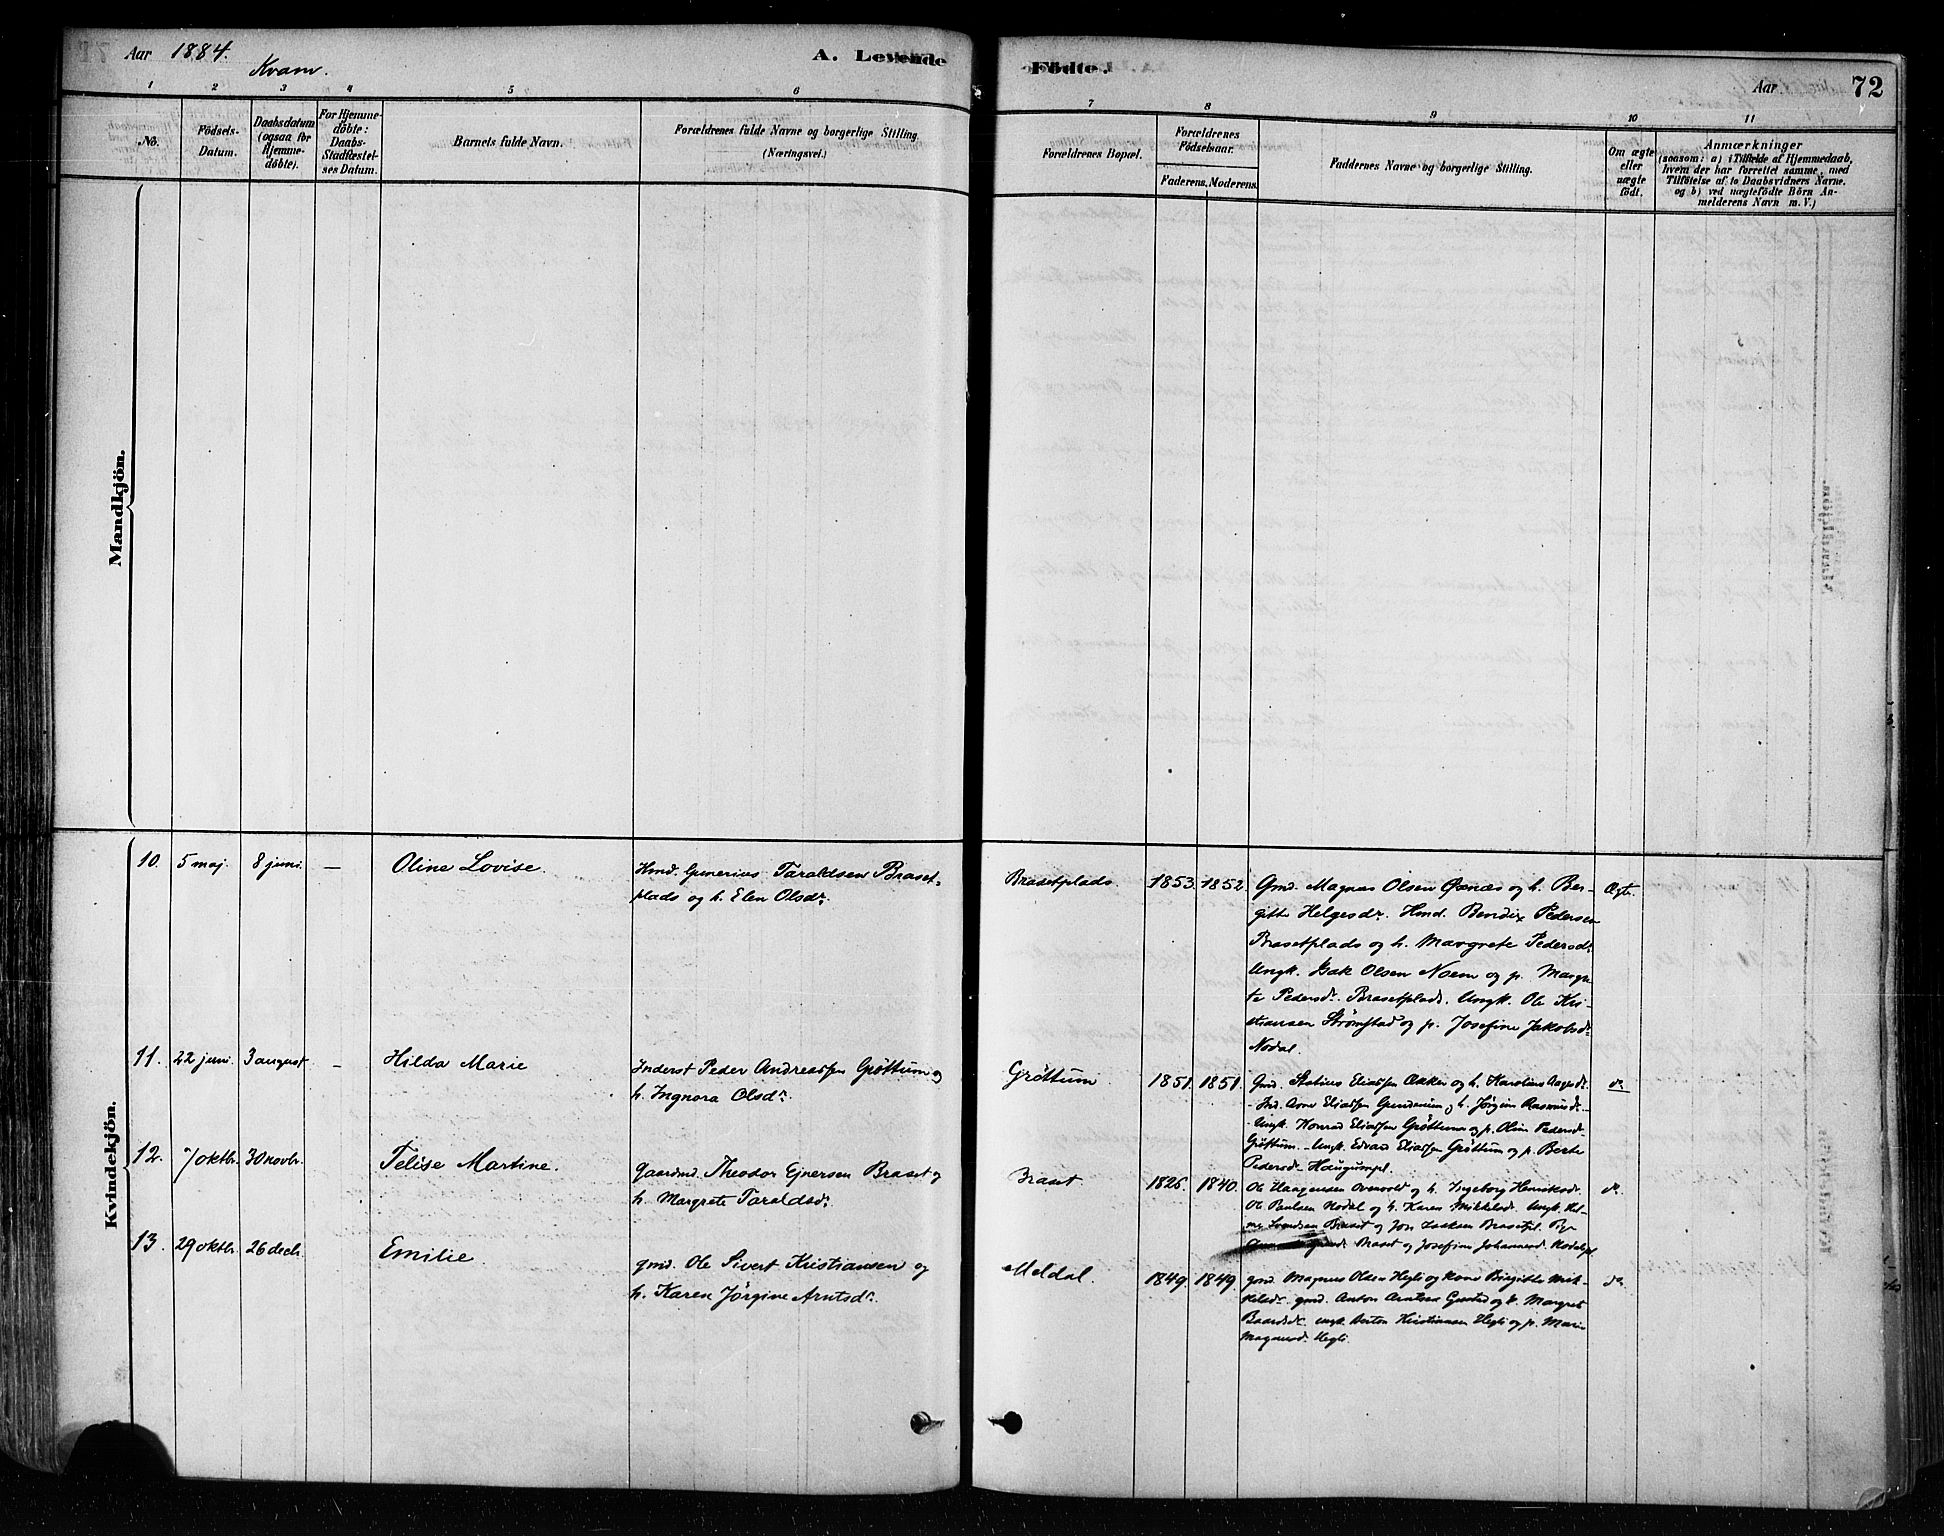 Aar 1884.
Kvam.
A. Levende
Födte.
Aar
72
1 2 3 4 5 6 7 8 9 10 11
No.
Födsels-
Datum.
Daabsdatum
(ogsaa for
Hjemme-
döbte).
For Hjemme-
döbte:
Daabs-
Stadfæstel-
ses Datum.
Barnets fulde Navn.
Forældrenes fulde Navne og borgerlige Stilling.
(Næringsvei.)
Forældrenes Bopæl.
Forældrenes
Födselsaar.
Faderens. Moderens.
Faddernes Navne og borgerlige Stilling.
Om ægte
eller
uægte
födt.
Anmærkninger
(saasom: a) i Tilfælde af Hjemmedaab,
hvem der har forrettet samme, med
Tilföielse af to Daabsvidners Navne.
og b) ved uægtefödte Börn An-
melderens Navn m. V.)
Mandkjön.
Kvindekjön.
10. 5 maj. 8 juni. — Oline Lovise.
Hmd. Gunerius Taraldsen Braset-
plads og h. Elen Olsdr.
Brasetplads. 1853. 1852.
Gmd. Magnus Olsen Øxnæs og h. Ber-
gitte Helgesdr. Hmd. Bendix Pedersen
Brasetplads og h. Margrete Pedersdr.
Ungk. Isak Olsen Noem og p. Margre-
te Pedersdr. Brasetplads. Ungk. Ole Kri-
stiansen Strømstad og p. Josefine Jakobsdr.
Nodal.
Ægte.
11. 22 juni. 3 august — Hilda Marie
Inderst Peder Andreassen Grøttum og
h. Ingnora Olsdr.
Grøttum. 1851. 1851.
Gmd. Eliassen Aakker og h. Karoline Aagesdr.
- Ind. Arne Eliassen og h. Jørgine Rasmusdr.
- Ungk. Konrad Eliassen Grøttum og p. Oline Pedersdr.
Grøttum. - Ungk. Edvard Eliassen Grøttum og p. Berte
Pedersdr.
do.
12. 7 oktbr. 30 novbr. Felise Martine.
Gaardmd. Theodor Ejnersen Braset og
h. Margrete Taraldsdr.
Braset. 1825. 1840.
Ole Haagensen Overvold og h. Ingeborg Henriksdr.
Ole Paulsen Nodal og h. Karen Mikkelsdr. Ungk. Hel-
ge Svendsen Braset og Jon Isaksen Brasetpl.
Braset og Josefine Johannesdr. Nodalpl.
do.
13. 29 oktbr. 26 decbr. Emilie.
gmd. Ole Sivert Kristiansen og
h. Karen Jørgine Arntsdr.
Meldal. 1849. 1849.
gmd. Magnus Olsen Hegli og kone Birgitte Mik-
kelsdr. gmd. Anton Arntsen og h. Margret
Baardsdr. ungk. Anton Kristiansen Hegli og p. Marie
Magnusdr. Hegli.
do.